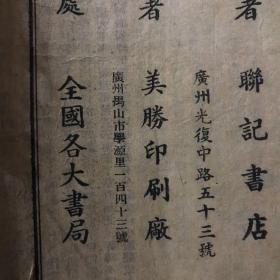 者 聯記書店
廣州光復中路五十三號
者 美勝印刷廠
廣州禺山市學源里一百四十三號
處 全國各大書局